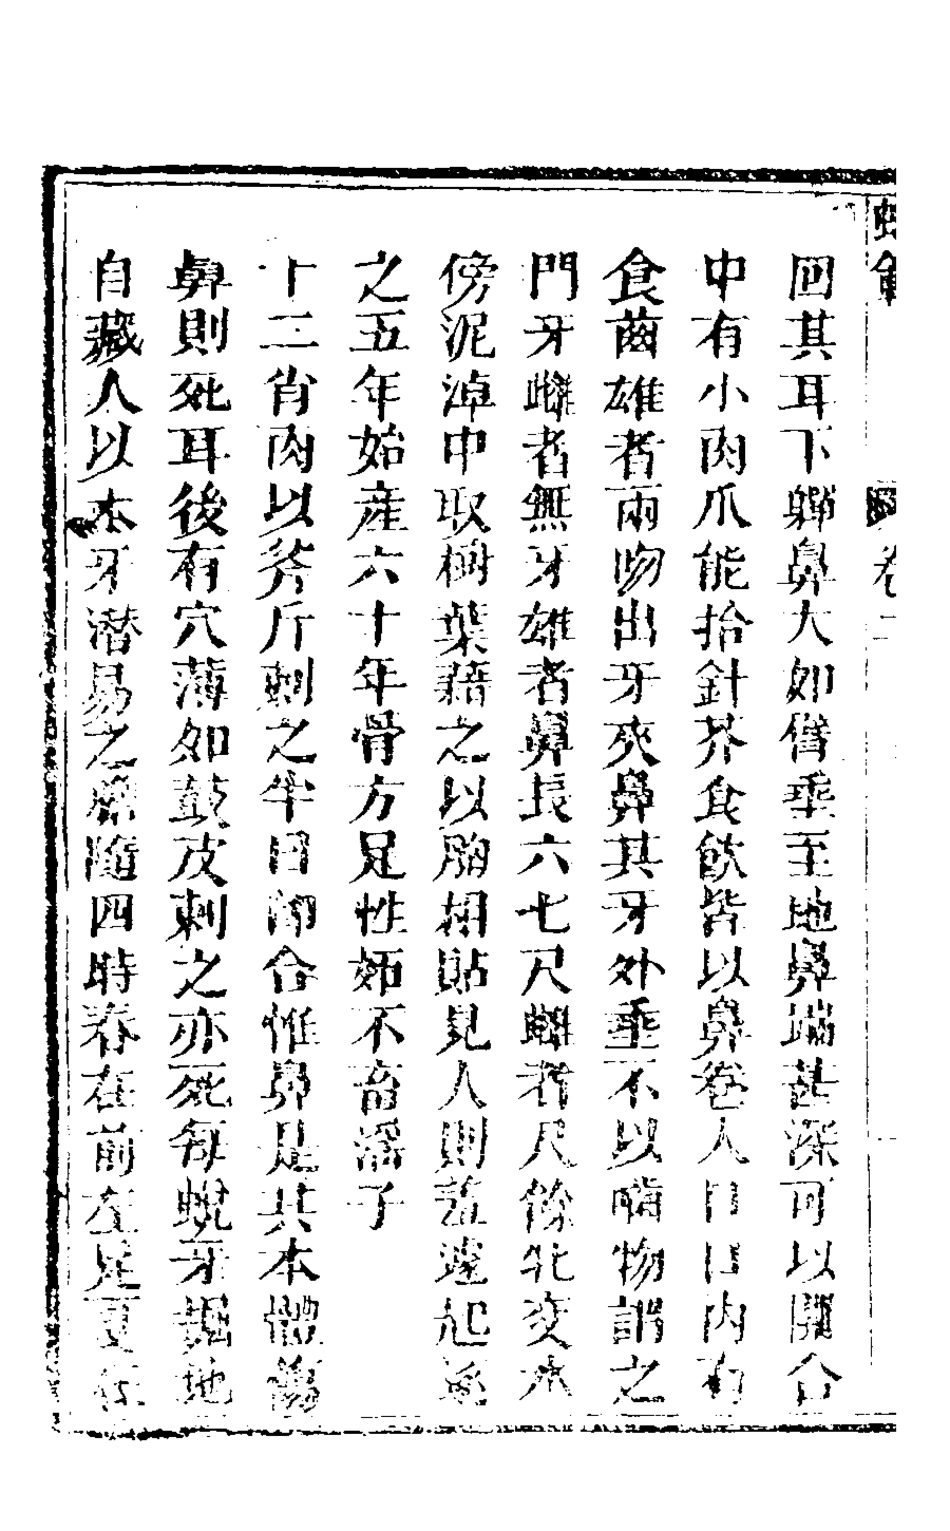 回其耳下軃鼻大如臂垂至地鼻端甚深可以開合
中有小肉爪能拾針芥食飲皆以鼻卷人口口內有
食齒雄者兩吻出牙夾鼻其牙外垂不以嚙物謂之
門牙雌者無牙雄者鼻長六七尺雌者尺餘牝交水
傍泥淖中取樹葉藉之以胸相貼見人則羞遽起逐
之五年始產六十年骨方足性妬不畜淫子
十二肖肉以斧斤刺之半日卽合惟鼻是其本體傷
鼻則死耳後有穴薄如鼓皮刺之亦死每蛻牙掘地
自藏人以木牙潛易之膽隨四時春在前左足夏在
卷二